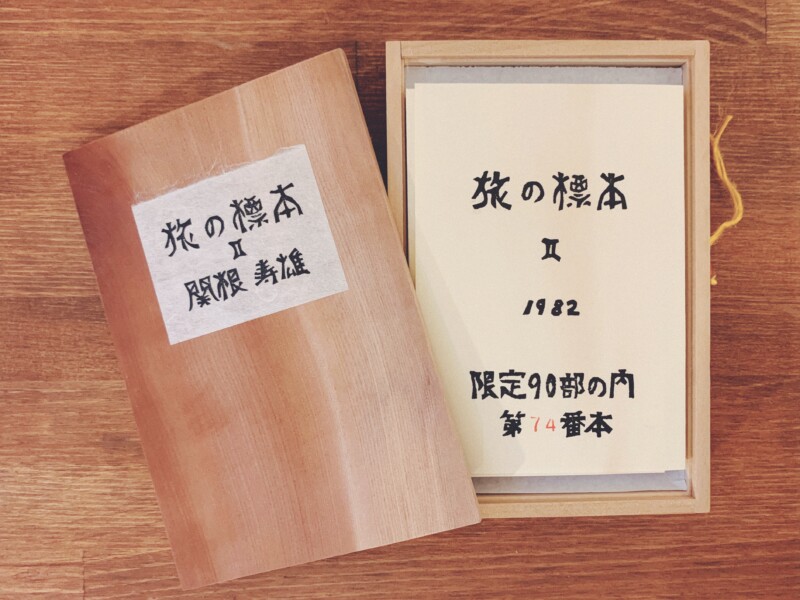 旅の標本
Ⅱ
関根 寿雄
旅の標本
Ⅱ
1982
限定90部の内
第74番本